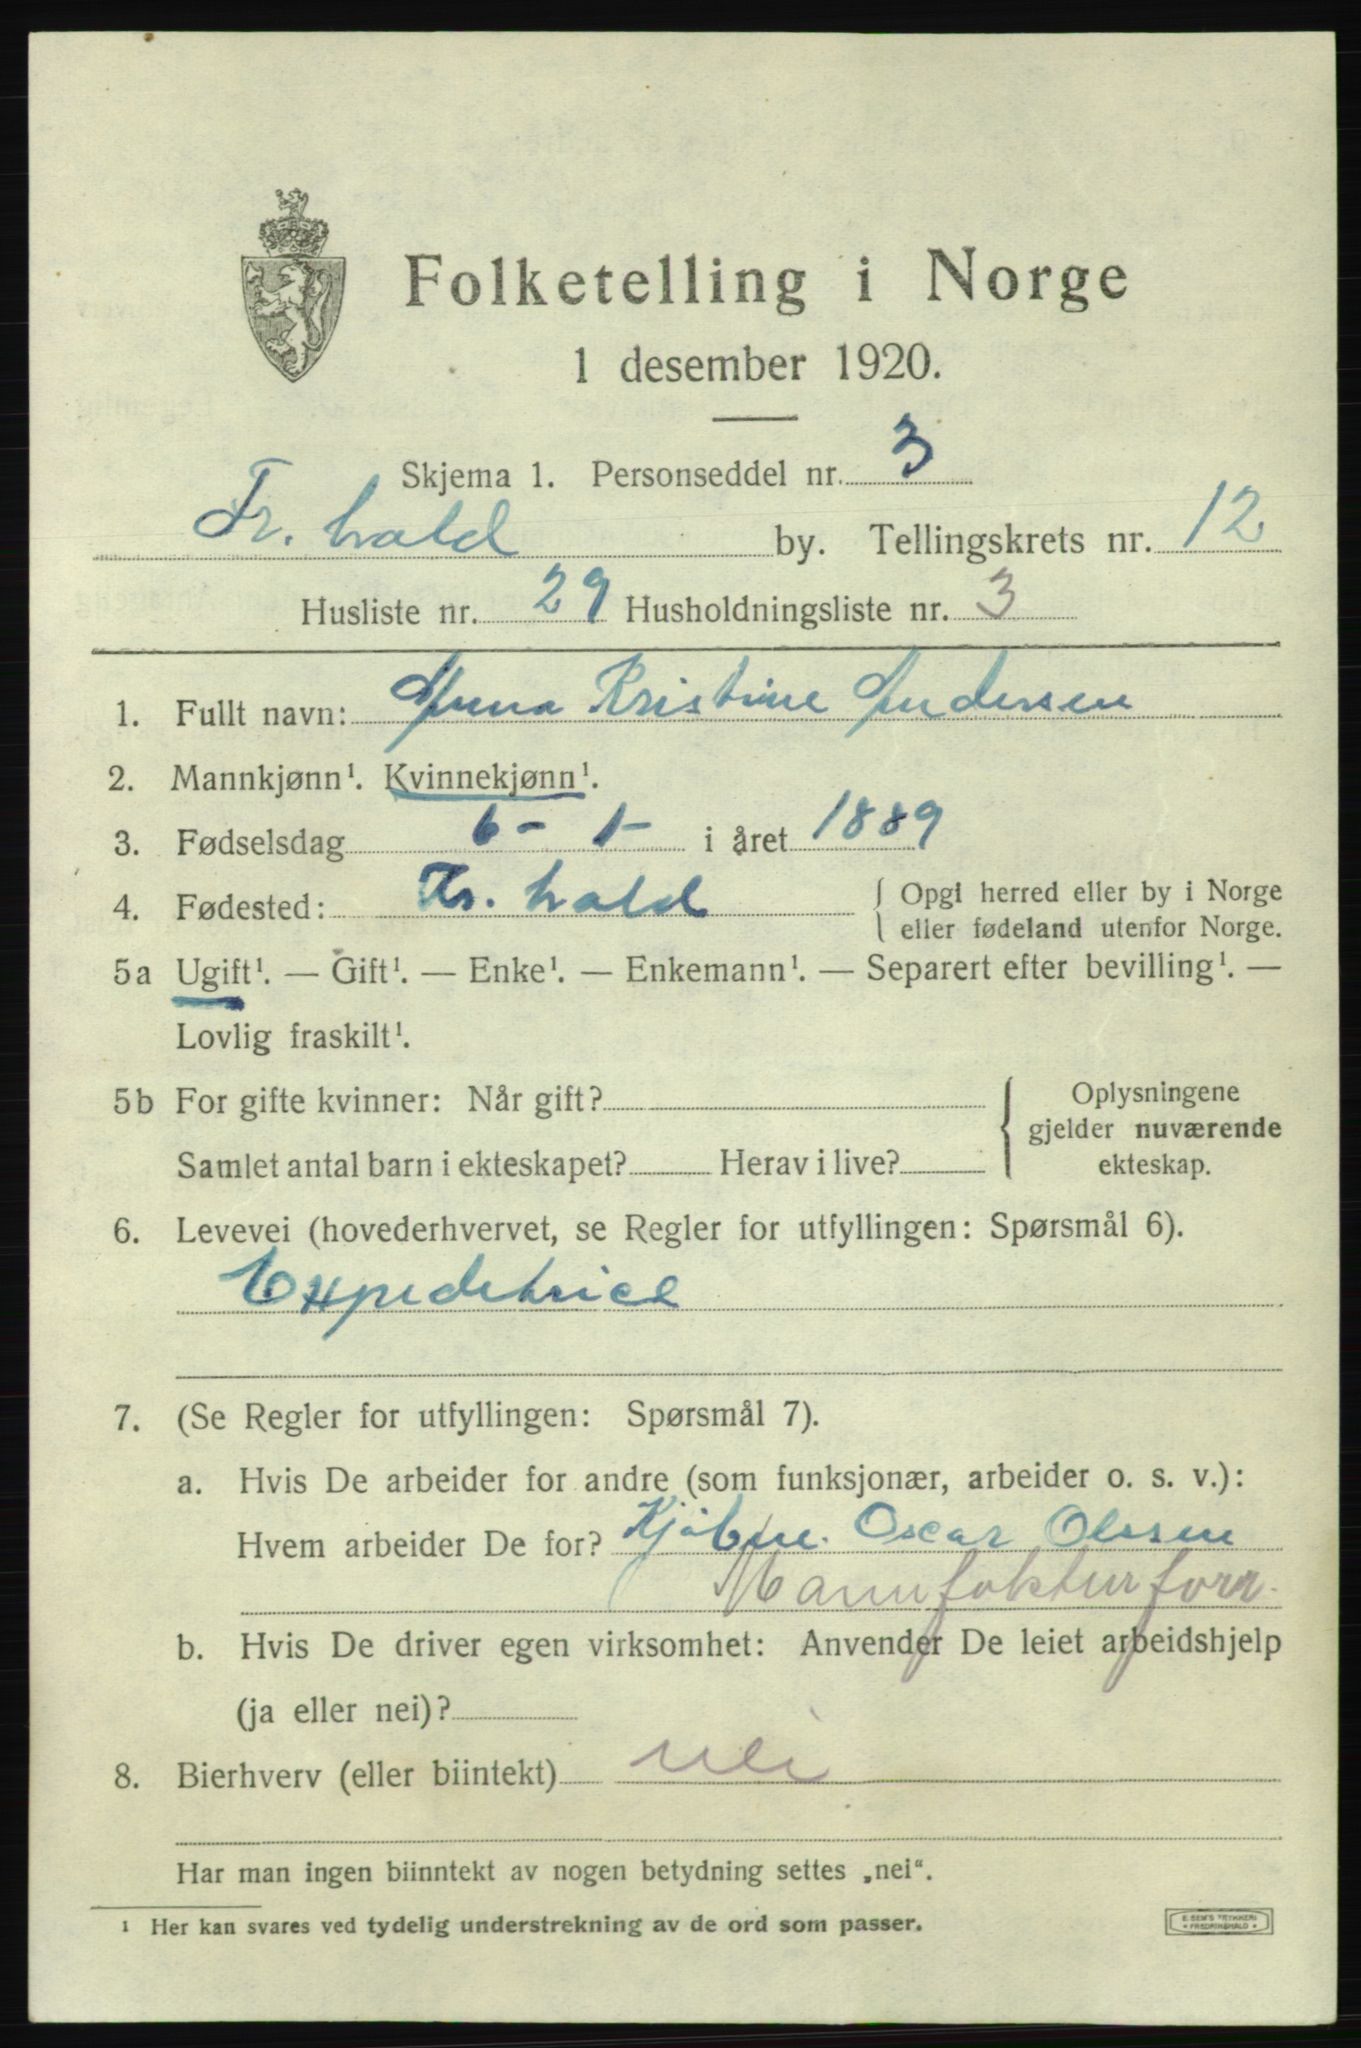 Folketelling i Norge
1 desember 1920.
Skjema 1. Personseddel nr. 3
Fr.hald by. Tellingskrets nr. 12
Husliste nr. 29 Husholdningsliste nr. 3
1. Fullt navn: Anna Kristine Andersen
2. Mannkjønn¹. Kvinnekjønn¹.
3. Fødselsdag 6 - 1 - i året 1889
4. Fødested: Fr.hald { Opgi herred eller by i Norge
eller fødeland utenfor Norge.
5a Ugift¹. — Gift¹. — Enke¹. — Enkemann¹. — Separert efter bevilling¹. —
Lovlig fraskilt¹.
5b For gifte kvinner: Når gift? { Oplysningene
gjelder nuværende
Samlet antal barn i ekteskapet? Herav i live? ekteskap.
6. Levevei (hovederhvervet, se Regler for utfyllingen: Spørsmål 6).
Expeditrice
7. (Se Regler for utfyllingen: Spørsmål 7).
a. Hvis De arbeider for andre (som funksjonær, arbeider o. s. v.):
Hvem arbeider De for? Kjöbm. Oscar Olssen
Manufakturforr.
b. Hvis De driver egen virksomhet: Anvender De leiet arbeidshjelp
(ja eller nei)?
8. Bierhverv (eller biintekt) nei
Har man ingen biinntekt av nogen betydning settes „nei“.
¹ Her kan svares ved tydelig understrekning av de ord som passer.
E. SEM'S TRYKKERI
* FREDRIKSHALD *